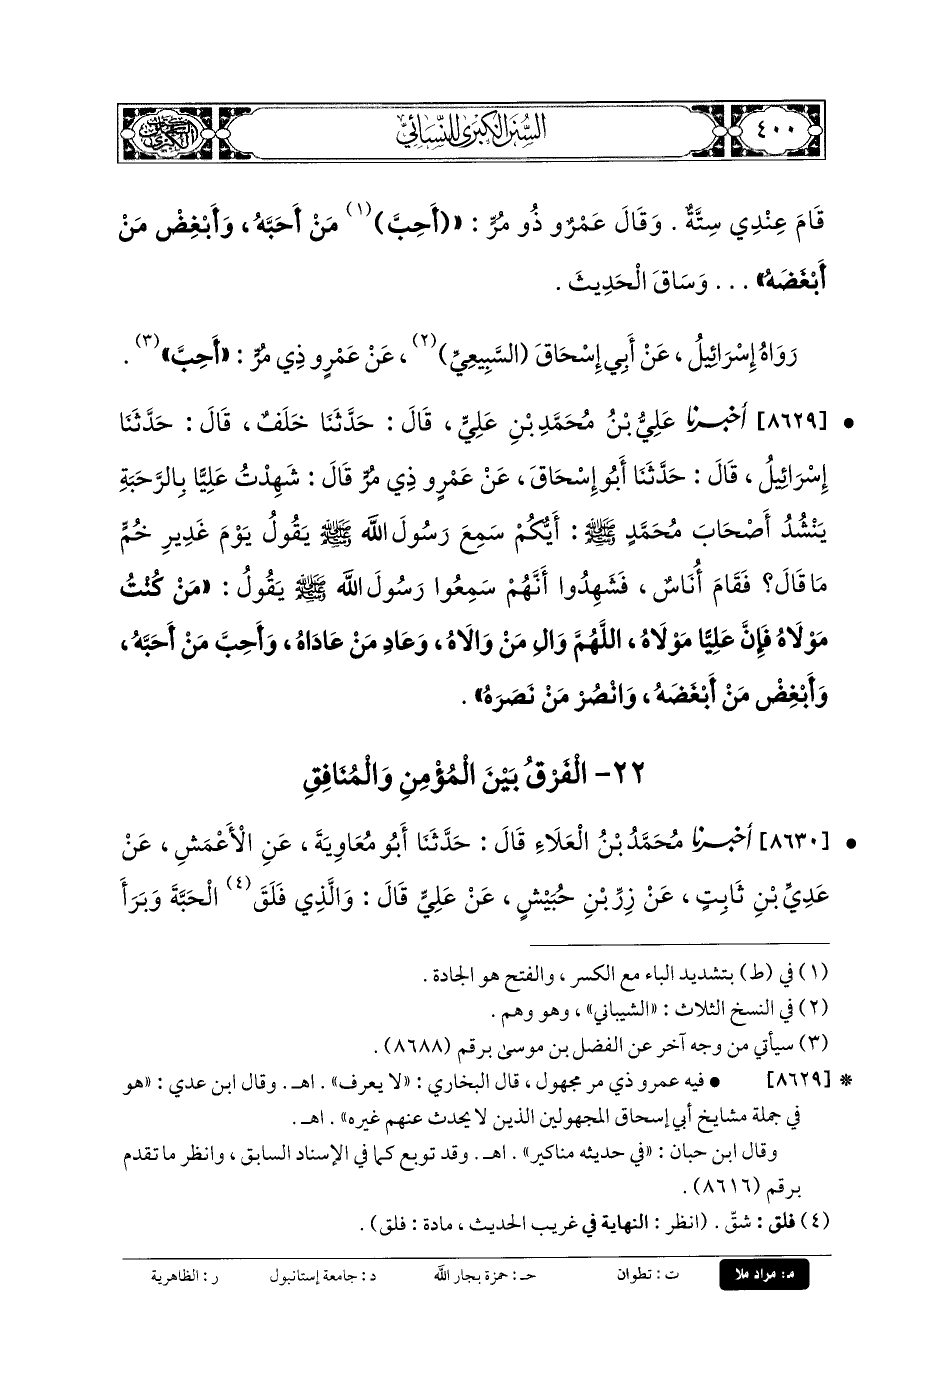 ٤٠٠
السنن الكبرى للنسائي
قَامَ عِنْدِي سِتَّةٌ . وَقَالَ عَمْرٌو ذُو مُرٍّ : «(أَحِبَّ)(١) مَنْ أَحَبَّهُ، وَأَبْغِضْ مَنْ
أَبْغَضَهُ» ... وَسَاقَ الْحَدِيثَ .
رَوَاهُ إِسْرَائِيلُ ، عَنْ أَبِي إِسْحَاقَ (السَّبِيعِيِّ)(٢) ، عَنْ عَمْرٍو ذِي مُرٍّ : «أَحِبَّ»(٣) .
• [٨٦٢٩] أخبرنا عَلِيُّ بْنُ مُحَمَّدِ بْنِ عَلِيٍّ ، قَالَ : حَدَّثَنَا خَلَفٌ ، قَالَ : حَدَّثَنَا
إِسْرَائِيلُ ، قَالَ : حَدَّثَنَا أَبُو إِسْحَاقَ ، عَنْ عَمْرٍو ذِي مُرٍّ قَالَ : شَهِدْتُ عَلِيًّا بِالرَّحَبَةِ
يَنْشُدُ أَصْحَابَ مُحَمَّدٍ ﷺ : أَيُّكُمْ سَمِعَ رَسُولَ اللَّه ﷺ يَقُولُ يَوْمَ غَدِيرِ خُمٍّ
مَا قَالَ؟ فَقَامَ أُنَاسٌ ، فَشَهِدُوا أَنَّهُمْ سَمِعُوا رَسُولَ اللَّه ﷺ يَقُولُ : «مَنْ كُنْتُ
مَوْلَاهُ فَإِنَّ عَلِيًّا مَوْلَاهُ ، اللَّهُمَّ وَالِ مَنْ وَالَاهُ ، وَعَادِ مَنْ عَادَاهُ ، وَأَحِبَّ مَنْ أَحَبَّهُ ،
وَأَبْغِضْ مَنْ أَبْغَضَهُ ، وَانْصُرْ مَنْ نَصَرَهُ» .
٢٢- الْفَرْقُ بَيْنَ الْمُؤْمِنِ وَالْمُنَافِقِ
• [٨٦٣٠] أخبرنا مُحَمَّدُ بْنُ الْعَلَاءِ قَالَ : حَدَّثَنَا أَبُو مُعَاوِيَةَ ، عَنِ الْأَعْمَشِ ، عَنْ
عَدِيِّ بْنِ ثَابِتٍ ، عَنْ زِرِّ بْنِ حُبَيْشٍ ، عَنْ عَلِيٍّ قَالَ : وَالَّذِي فَلَقَ(٤) الْحَبَّةَ وَبَرَأَ
(١) في (ط) بتشديد الباء مع الكسر ، والفتح هو الجادة .
(٢) في النسخ الثلاث : «الشيباني» ، وهو وهم .
(٣) سيأتي من وجه آخر عن الفضل بن موسى برقم (٨٦٨٨) .
* [٨٦٢٩] • فيه عمرو ذي مر مجهول ، قال البخاري : «لا يعرف» . اهـ. وقال ابن عدي : «هو
في جملة مشايخ أبي إسحاق المجهولين الذين لا يحدث عنهم غيره» . اهـ.
وقال ابن حبان : «في حديثه مناكير» . اهـ. وقد توبع كما في الإسناد السابق ، وانظر ما تقدم
برقم (٨٦١٦) .
(٤) فلق : شقّ . (انظر : النهاية في غريب الحديث ، مادة : فلق) .
م: مراد ملا ت : تطوان حـ : حمزة بجار اللَّه د : جامعة إستانبول ر : الظاهرية